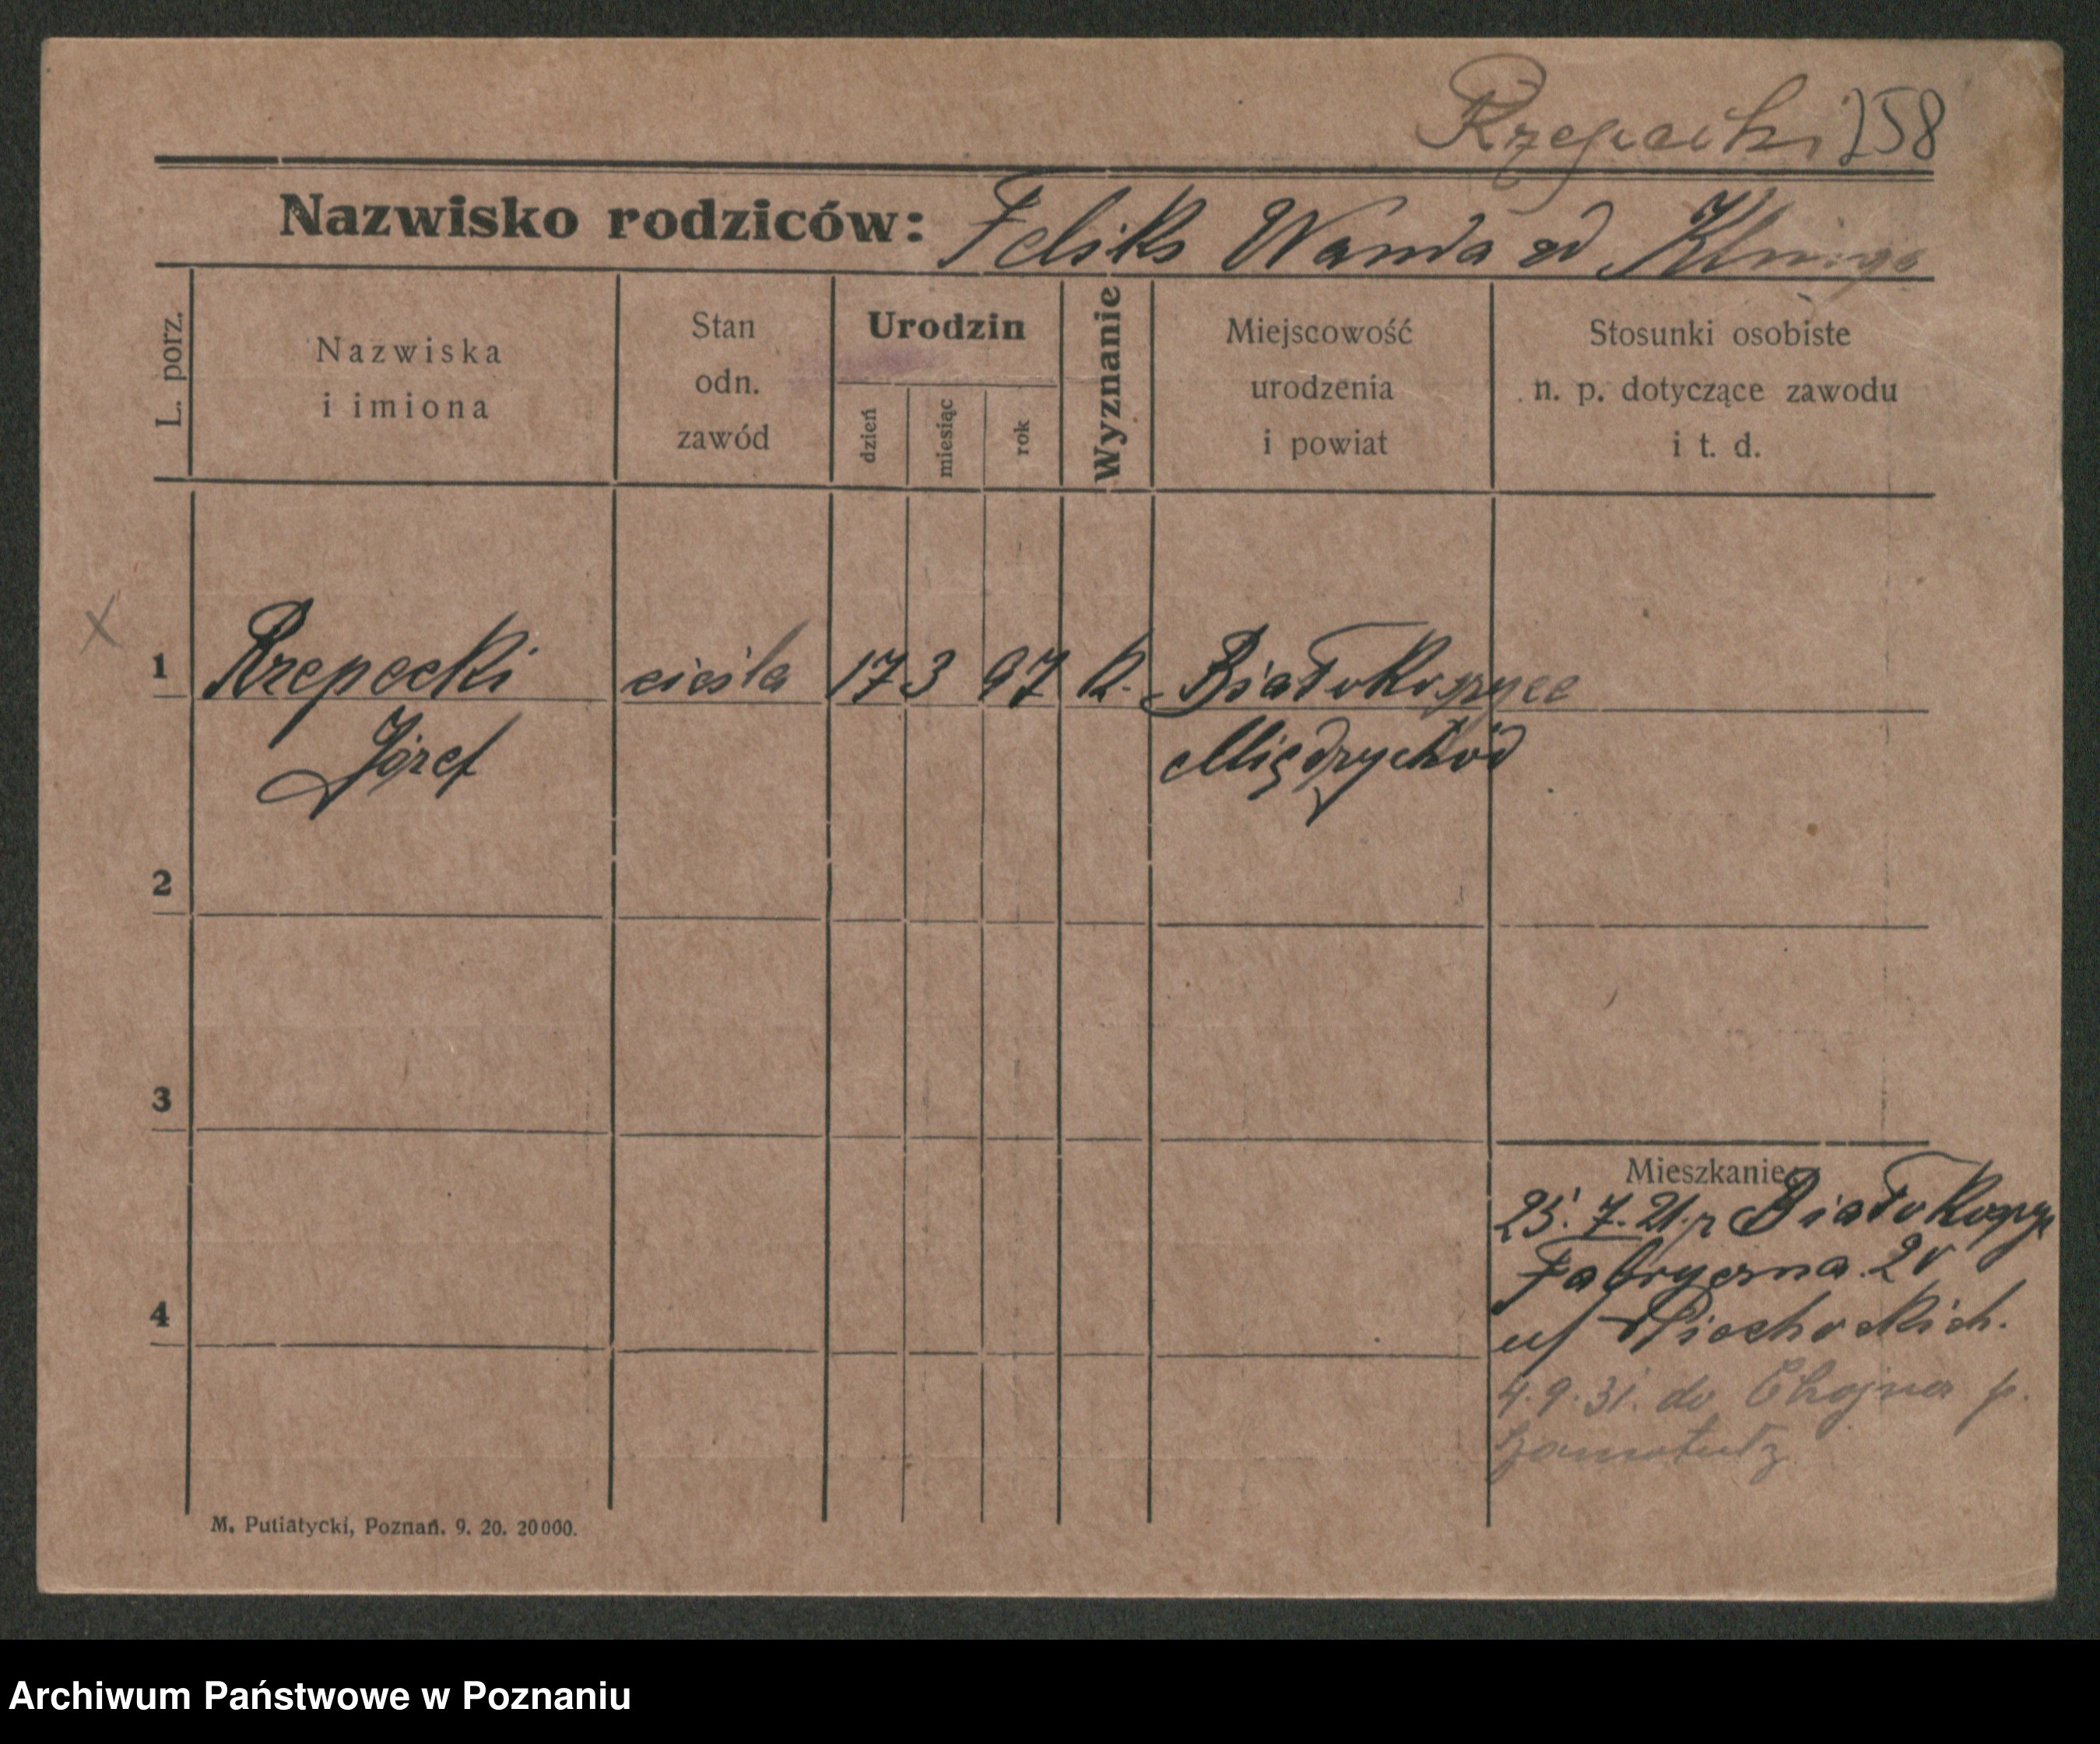 Rzepecki 258
Nazwisko rodziców: Feliks Wanda od
L. porz.
Nazwiska
i imiona
Stan
odn.
zawód
Urodzin
dzień
miesiąc
rok
Wyznanie
Miejscowość
urodzenia
i powiat
Stosunki osobiste
n. p. dotyczące zawodu
i t. d.
x
1 Rzepecki cieśla 17 3 97 k. Białokoszyce
Józef Międzychód
2
3
4
Mieszkanie
25. 7. 21. z Białokoszyc
Fabryczna 20
u/ Piechockich.
4. 9. 31. do Chojna p.
Szamotuły
M. Putiatycki, Poznań. 9. 20. 20000.
Archiwum Państwowe w Poznaniu